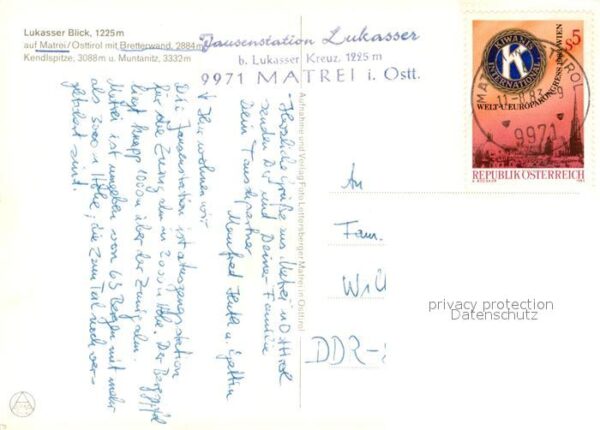 Lukasser Blick, 1225m
auf Matrei/Osttirol mit Bretterwand, 2884m
Kendlspitze, 3088m u. Muntanitz, 3332m
Jausenstation Lukasser
b. Lukasser Kreuz, 1225 m
9971 MATREI i. Ostt.
KIWANIS
INTERNATIONAL
K
S5
WELT-U.EUROPAKONGRESS 1983 WIEN
REPUBLIK ÖSTERREICH
MATREI
TIROL
9971
Aufnahme und Verlag Foto Lottersberger Matrei in Osttirol
Herzliche Grüße aus Matrei i. Osttirol
senden Dir und Deiner Familie
Dein Tauschpartner
Manfred u. Gattin
Hier wohnen wir
Die Jausenstation ist Ausgangsstation
für die
liegt knapp 1000m über der
Matrei ist umgeben von 63 Bergen mit mehr
als 3000 m Höhe, die zum Teil noch ver-
gletschert sind!
An
Fam.
DDR-
privacy protection
Datenschutz